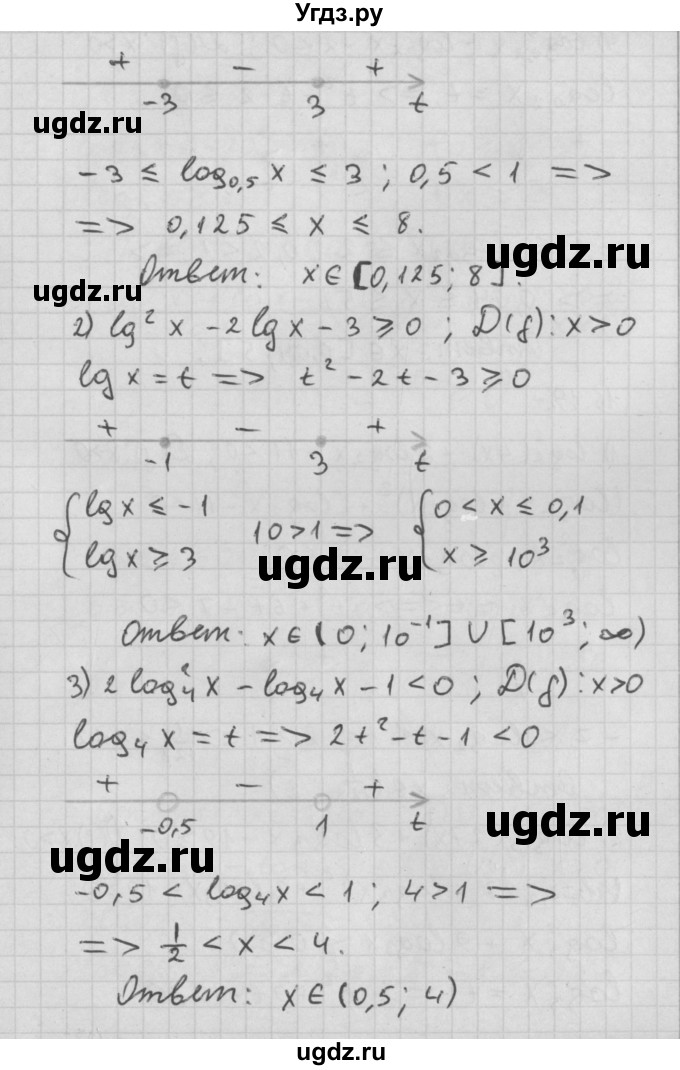 Угдз.ру
+ − +
-3 3 t
ugdz.ru
-3 ≤ log₀,₅ x ≤ 3 ; 0,5 < 1 =>
=> 0,125 ≤ x ≤ 8.
ugdz.ru
Ответ: x ∈ [0,125; 8].
ugdz.ru
2) lg² x - 2 lg x - 3 ≥ 0 ; D(f): x > 0
lg x = t => t² - 2t - 3 ≥ 0
+ − +
-1 3 t
{ lg x ≤ -1 10 > 1 => { 0 < x ≤ 0,1
lg x ≥ 3 x ≥ 10³
ugdz.ru
Ответ: x ∈ (0; 10⁻¹] ∪ [10³; ∞)
3) 2 log₄² x - log₄ x - 1 < 0 ; D(f): x > 0
log₄ x = t => 2t² - t - 1 < 0
+ − +
-0,5 1 t
ugdz.ru
ugdz.ru
-0,5 < log₄ x < 1 ; 4 > 1 =>
=> 1/2 < x < 4.
Ответ: x ∈ (0,5; 4)
ugdz.ru